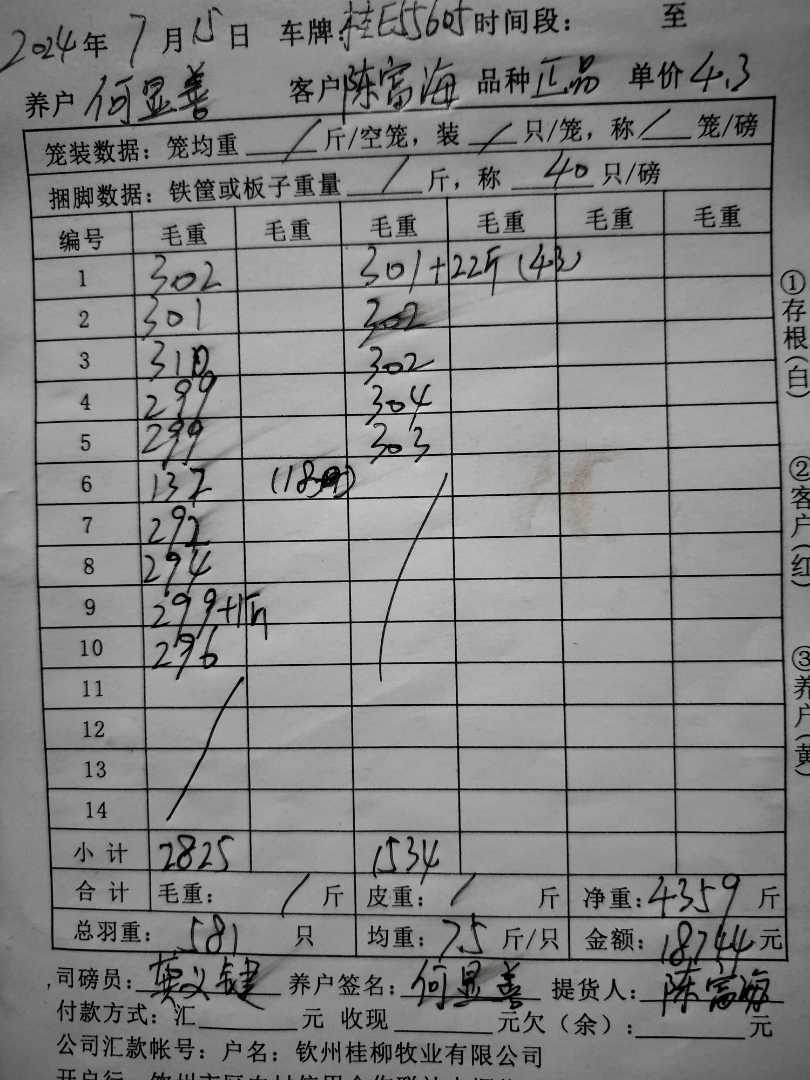 2024年7月15日 车牌:桂E55605时间段: 至
养户 何显善 客户 陈富海 品种 正品 单价 4.3
笼装数据: 笼均重 / 斤/空笼, 装 / 只/笼, 称 / 笼/磅
捆脚数据: 铁筐或板子重量 / 斤, 称 40 只/磅
编号 毛重 毛重 毛重 毛重 毛重 毛重
1 302 301+22斤(43)
2 301 302
3 310 302
4 299 304
5 299 303
6 132
7 292
8 294
9 299+1斤
10 296
11
12
13
14
小计 2825 1534
合计 毛重: / 斤 皮重: / 斤 净重: 4359 斤
总羽重: 581 只 均重: 7.5 斤/只 金额: 18744 元
司磅员: 养户签名: 何显善 提货人: 陈富海
付款方式: 汇 元 收现 元欠(余): 元
公司汇款帐号: 户名: 钦州桂柳牧业有限公司
①存根(白) ②客户(红) ③养户(黄)